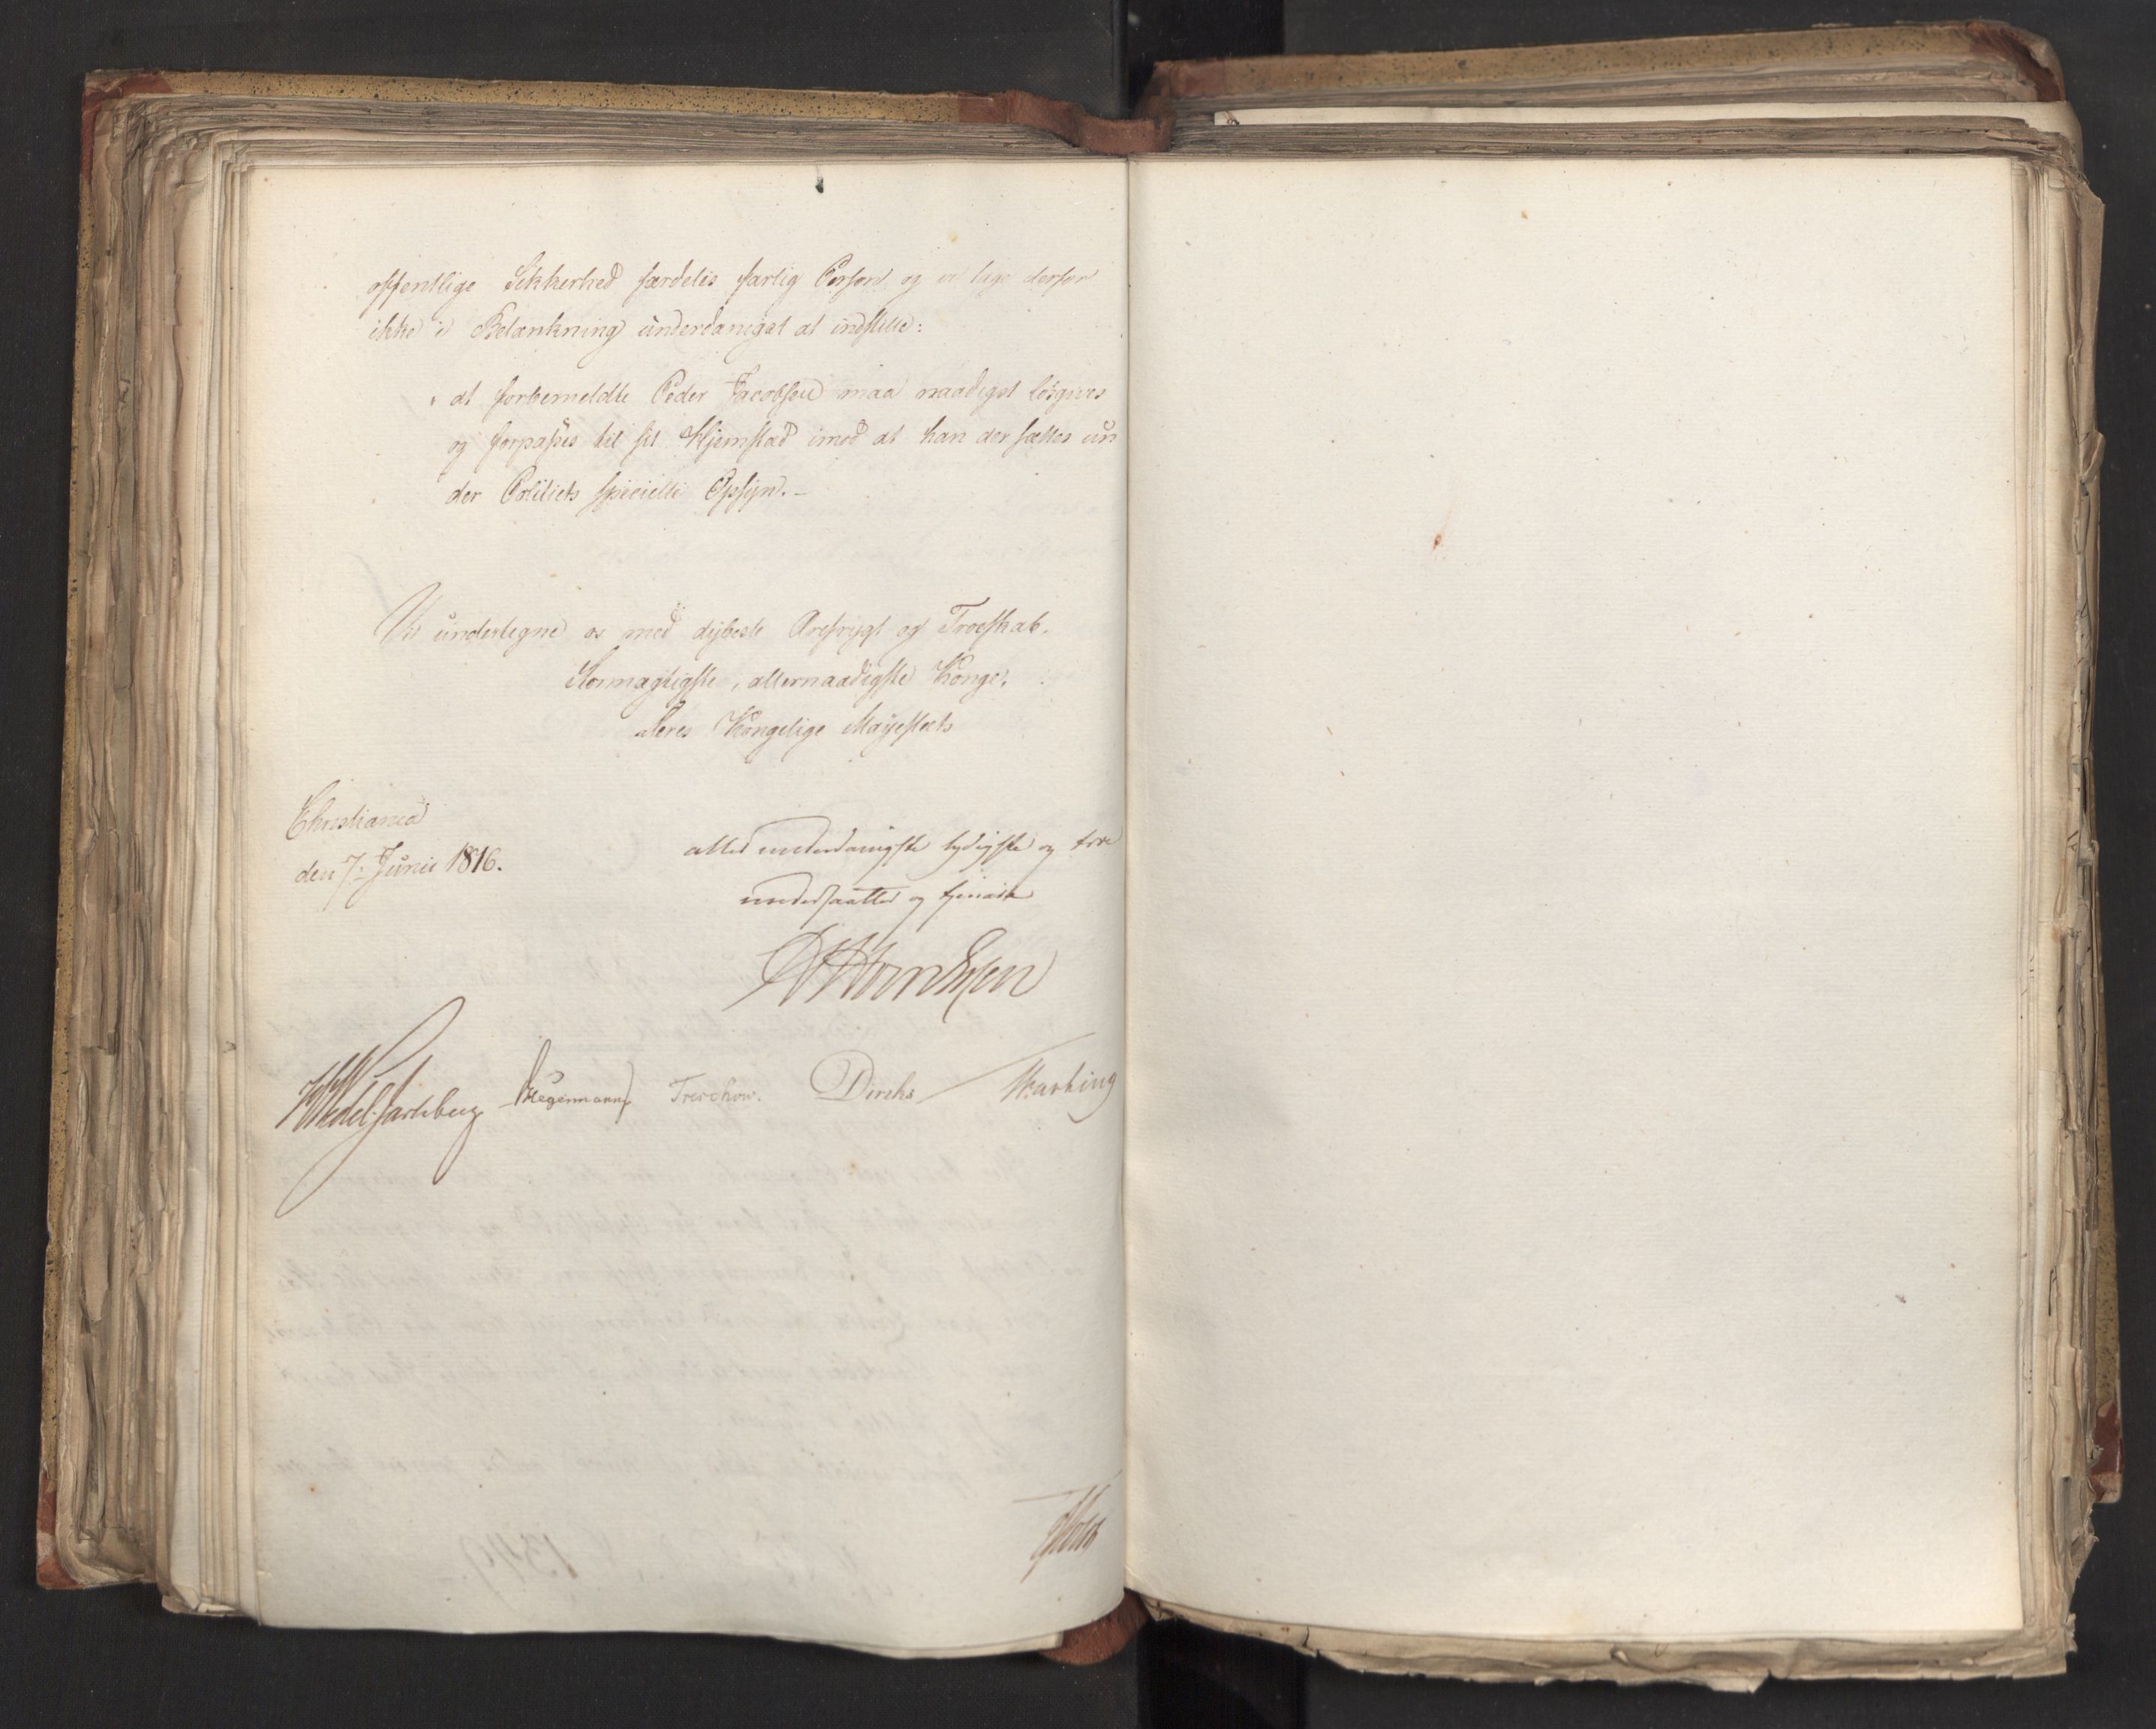 offentlige Sikkerhed særdeles farlig Person, og vi tage derfor
ikke i Betænkning underdanigst at indstille:
at forbemeldte Peder Jacobsen maa naadigst løsgives
og forpasses til sit Hjemstæd imod at han der sættes un
der Politiets specielle Opsyn. –
Vi undertegne os med dybeste Ærefrygt og Troeskab.
Stormægtigste, allernaadigste Konge!
Deres Kongelige Majestæts
Christiania
den 7. Junii 1816.
allerunderdanigste lydigste og troe
undersaatter og tjenere
Wedel Jarlsberg Hegermann Treschow. Diriks